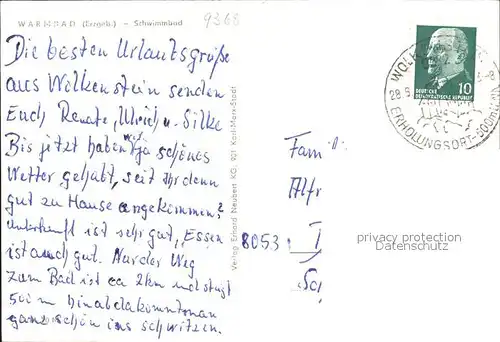 WARMBAD (Erzgeb.) – Schwimmbad
9368
Die besten Urlaubsgrüße
aus Wolkenstein senden
Euch Renate, Ulrich u. Silke
Bis jetzt haben wir ja schönes
Wetter gehabt, seit Ihr denn
gut zu Hause angekommen?
Unterkunft ist sehr gut, Essen
ist auch gut. Nur der Weg
zum Bad ist ca 2km und steigt
500 m hinab da kommt man
ganz schön ins schwitzen.
Verlag Erhard Neubert KG, 901 Karl-Marx-Stadt
10
DEUTSCHE
DEMOKRATISCHE REPUBLIK
28.5
ERHOLUNGSORT-500m
Fami
Alfr
8053
privacy protection
Datenschutz